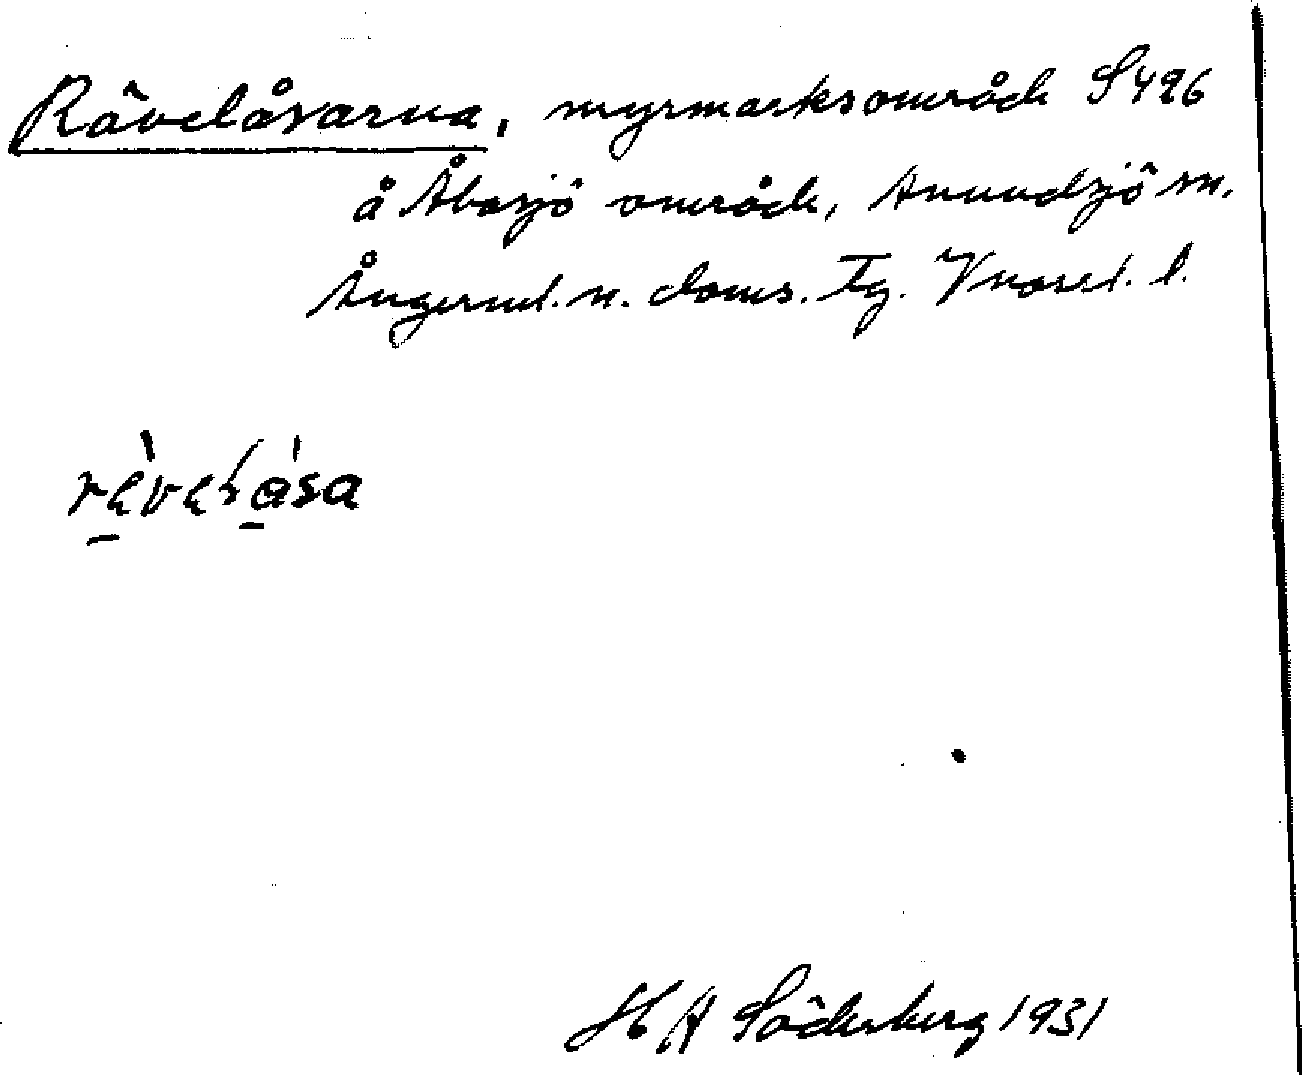 Rävelåsarna, myrmarksområde S496
å Åbosjö område, Anundsjö sn.
Ångerml. n. doms. Tg. Vnorrl. l.
H A Söderberg 1931